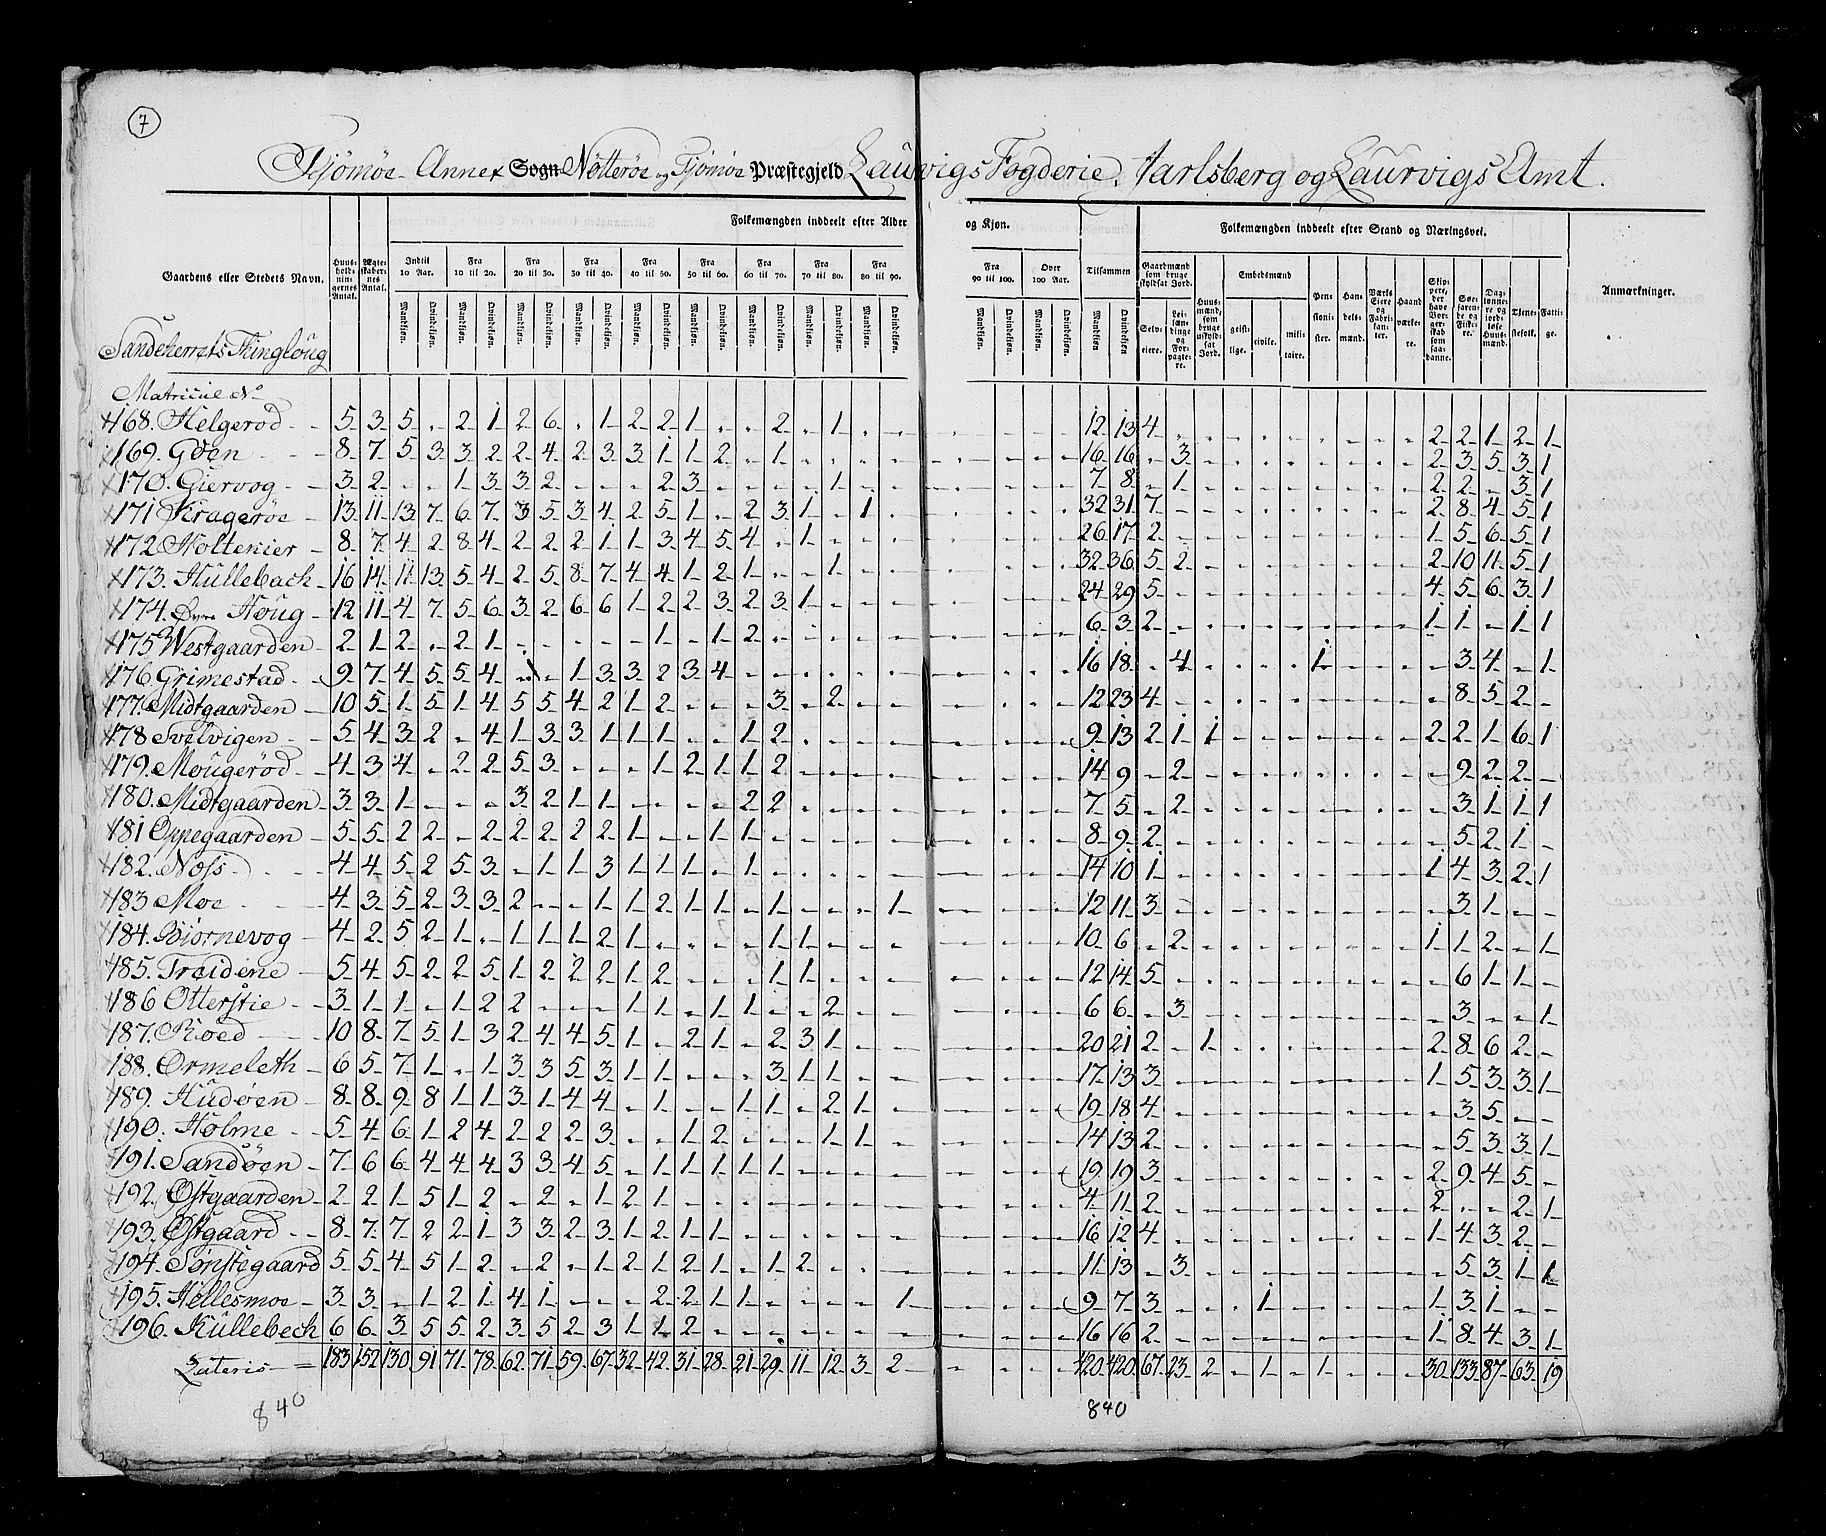 7
Tjömöe Annex Sogn Nötteröe og Tjömöe Præstegjeld Laurvigs Fogderie. Jarlsberg og Laurvigs Amt.
Gaardens eller Stedets Navn. Huusholdningernes Antal. Ægteskabernes Antal. Folkemængden inddeelt efter Alder og Kjøn. Folkemængden inddeelt efter Stand og Næringsvei. Anmærkninger.
Indtil 10 Aar. Fra 10 til 20. Fra 20 til 30. Fra 30 til 40. Fra 40 til 50. Fra 50 til 60. Fra 60 til 70. Fra 70 til 80. Fra 80 til 90. Fra 90 til 100. Over 100 Aar. Tilsammen
Mandkiøn. Qvindekiøn.
Gaardmænd som bruge skyldsat Jord. Selveiere. Leilændinge og Forpagtere. Huusmænd, som bruge uskyldsat Jord. Embedsmænd geistlige. civile. militaire. Pensionister. Handelsmænd. Værkseiere og Fabrikanter. Haandværkere. Skippere, der have Borgerskab som saadanne. Søefarende og Fiskere. Daglønnere og jordløse Huusmænd. Tjenestefolk. Fattige.
Sandeherrets Thinglaug
Matricul No
168. Helgeröd 5 3 5 - 2 1 2 6 - 1 2 2 1 - - 2 - 1 - - - - - - 12 13 4 - - - - - - - - - 2 2 1 2 1
169. Göen 8 7 5 3 3 2 2 4 2 3 3 1 1 2 - 1 - - - - - - - - 16 16 - 3 - - - - - - - - 2 3 5 3 1
170. Giervog 3 2 - - 1 3 3 2 - - - 2 3 - - - - 1 - - - - - - 7 8 - 1 - - - - - - - - 2 2 - 3 1
171 Krageröe 13 11 13 7 6 7 3 5 3 4 2 5 1 - 2 3 1 - 1 - - - - - 32 31 7 - - - - - - - - - 2 8 4 5 1
172 Holtenier 8 7 4 2 8 4 2 2 2 1 1 3 4 5 4 - 1 - - - - - - - 26 17 2 - - - - - - - - - 1 5 6 5 1
173. Hullebach 16 14 11 13 5 4 2 5 8 7 4 4 1 2 1 - - 1 - - - - - - 32 36 5 2 - - - - - - - - 2 10 11 5 1
174. Øvre Houg 12 11 4 7 5 6 3 2 6 6 1 2 2 3 2 3 1 - - - - - - - 24 29 5 - - - - - - - - - 4 5 6 3 1
175 Westgaarden 2 1 2 - 2 1 - - - - - 1 - 1 2 - - - - - - - - - 6 3 2 - - - - - - - - - 1 1 - 1 1
176. Grimestad 9 7 4 5 5 4 - - 1 3 3 2 3 4 - - - - - - - - - - 16 18 - 4 - - - - 1 - - - - 3 4 - 1
177. Midtgaarden 10 5 1 5 1 4 5 5 4 2 1 2 - - - 3 - 2 - - - - - - 12 23 4 - - - - - - - - - - 8 5 2 -
178 Svelvigen 5 4 3 2 - 4 1 3 3 1 1 1 - - 1 2 - - - - - - - - 9 13 2 1 1 - - - - - - - 2 2 1 6 1
179. Mougeröd 4 3 4 - 2 2 5 3 - - - 1 2 1 1 2 - - - - - - - - 14 9 - 2 - - - - - - - - - 9 2 2 -
180. Midtgaarden 3 3 1 - - - 3 2 1 1 - - - - 2 2 - - - - - - - - 7 5 - 2 - - - - - - - - - 3 1 1 1
181 Oppegaarden 5 5 2 2 - 2 2 2 2 2 1 - - 1 1 - - - - - - - - - 8 9 2 - - - - - - - - - - 5 2 1 -
182. Noss 4 4 5 2 5 3 - 1 1 3 1 1 1 - 1 - - - - - - - - - 14 10 1 - - - - - - - - - 1 4 3 2 1
183 Moe 4 3 5 2 3 3 2 - - 1 1 2 1 1 - 1 - - - 1 - - - - 12 11 3 - - - - - - - - - - 3 1 - -
184. Biörnevog 4 2 5 2 1 - 1 1 1 2 1 - - - - 1 1 - - - - - - - 10 6 - 2 - - - - - - - - 1 1 2 - 1
185. Treidene 5 4 5 2 2 5 1 2 2 2 1 2 - - - 1 1 - - - - - - - 12 14 5 - - - - - - - - - - 6 1 1 -
186 Otterstie 3 1 1 - 1 2 2 - - - 1 1 - 1 1 - - 2 - - - - - - 6 6 - 3 - - - - - - - - - 3 - - 1
187. Röed 10 8 7 5 1 3 2 4 4 5 1 - 2 1 - 2 3 1 - - - - - - 20 21 2 - 1 - - - - - - - 2 8 6 2 -
188. Ormeleth 6 5 7 1 - 1 3 3 5 3 1 1 - - - 3 1 1 - - - - - - 17 13 3 - - - - - - - - - 1 5 3 3 1
189. Hudöen 8 8 9 8 1 1 3 1 4 4 - 1 - - 1 1 - 2 1 - - - - - 19 18 4 - - - - - - - - - - 3 5 - -
190. Holme 5 4 6 1 2 4 2 2 2 3 - - 1 2 - - - 1 1 - - - - - 14 13 2 - - - - - - - - - - 5 3 3 1
191. Sandöen 7 6 6 4 4 4 3 3 4 5 - 1 1 1 1 1 - - - - - - - - 19 19 3 - - - - - - - - - 2 9 4 5 -
192. Østgaarden 2 2 1 5 1 2 - 2 - 1 2 1 - - - - - - - - - - - - 4 11 2 - - - - - - - - - 2 - - 2 1
193. Østgaard 8 7 7 2 2 1 3 3 2 3 1 2 1 1 - - - - - - - - - - 16 12 4 - - - - - - - - - 1 4 3 2 -
194. Sönstegaard 5 5 4 5 1 2 - 2 - 1 2 1 2 1 - 1 2 - - - - - - - 11 13 - 3 - - - - - - - - - 5 3 1 1
195. Hellesmoe 3 3 - 1 2 1 4 1 - - - 2 2 1 1 - - - - 1 - - - - 9 7 3 - - - 1 - - - - - 1 3 1 - -
196. Kullebech 6 6 3 5 5 2 3 5 2 3 1 1 2 - - - - - - - - - - - 16 16 2 - - - - - - - - - 1 8 4 3 1
Lateris = 183 152 130 91 71 78 62 71 59 67 32 42 31 28 21 29 11 12 3 2 - - - - 420 420 67 23 2 - 1 - 1 - - - 30 133 87 63 19
840 840